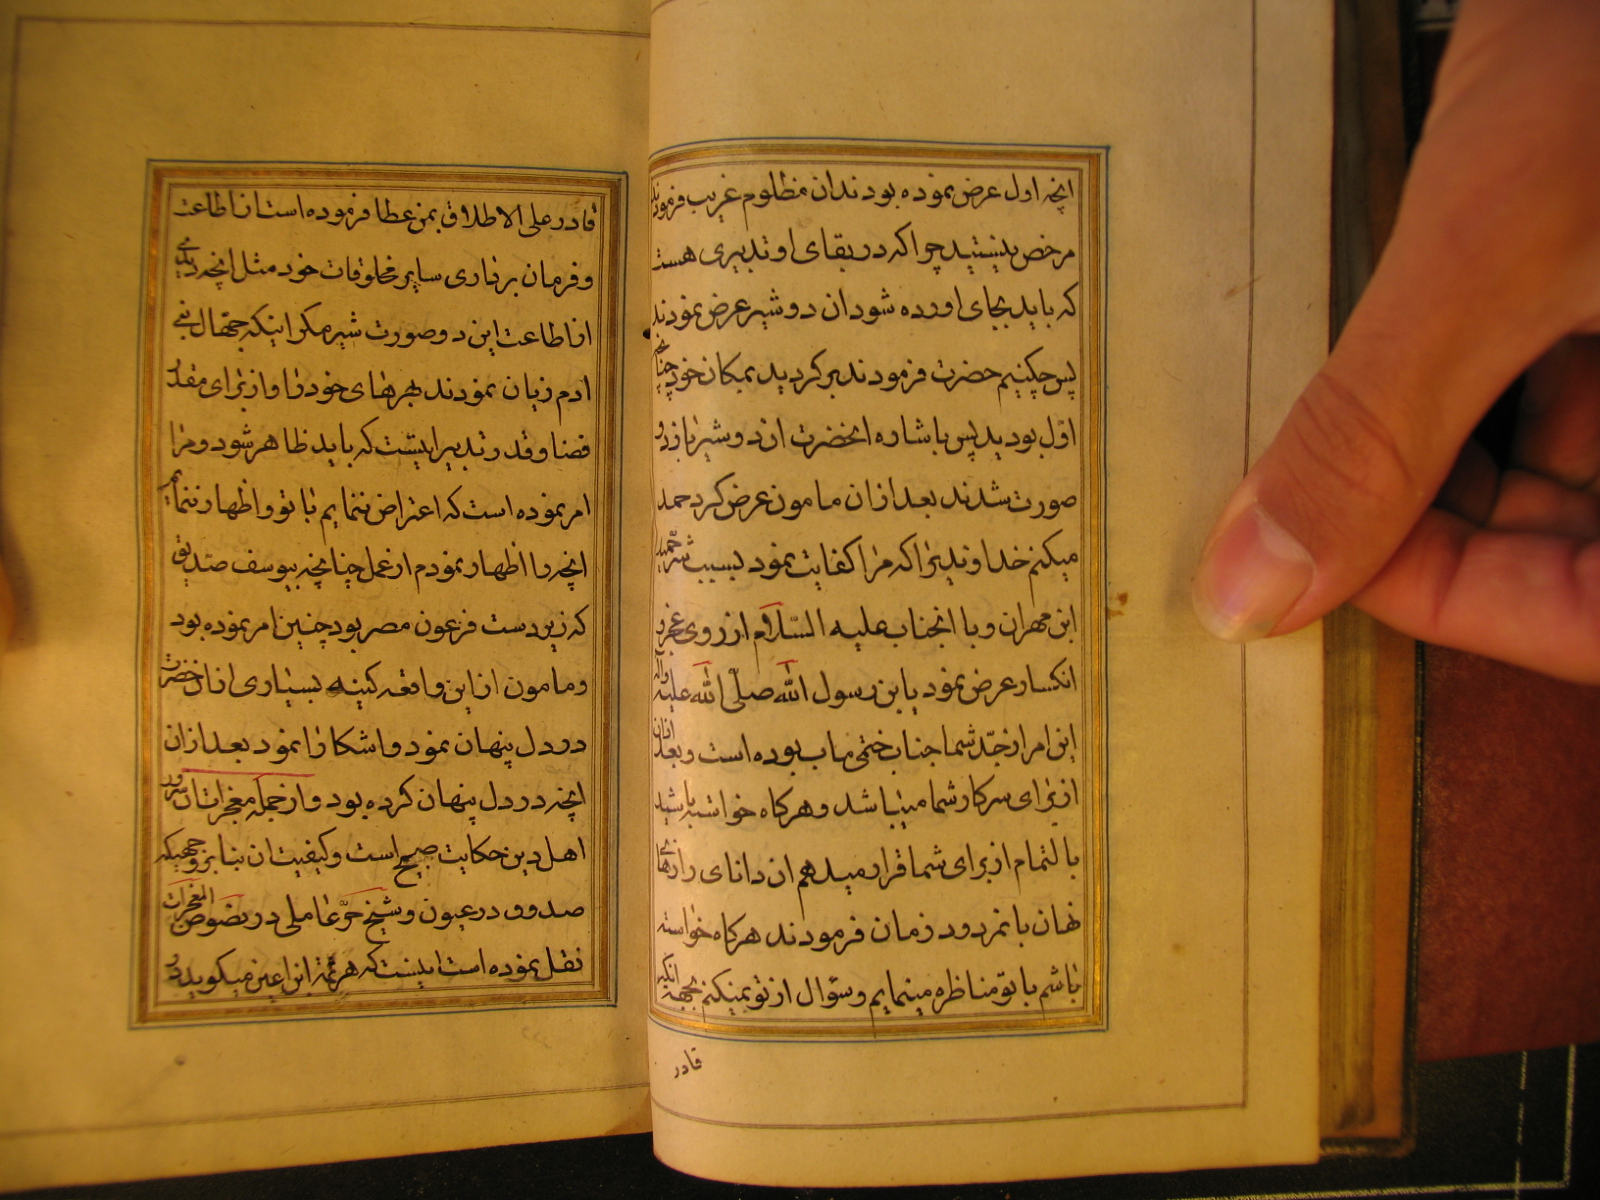 انچه اول عرض نموده بودند ان مظلوم غریب فرمودند
مرخص نیستید چرا که در بقای او تدبیری هست
که باید بجای اورده شود ان دو شیر عرض نمودند
پس چکنیم حضرت فرمودند برکردید بمکان خود چنانچه
اول بودید پس باشاره انحضرت ان دو شیر باز دو
صورت شدند بعد ازان مامون عرض کرد حمد
میکنم خداوندیرا که مرا کفایت نمود بسبب شر حمید
ابن مهران و با انجناب علیه السلام از روی عجز و
انکسار عرض نمود یابن رسول الله صلّی الله علیه واله
این امر از جدّ شما جناب ختمی ماب بوده است و بعد ازان
از برای سرکار شما میباشد و هرکاه خواسته باشید
بالتمام از برای شما قرار میدهم ان دانای رازهای
نهان با نمرود زمان فرمودند هرکاه خواسته
باشم با تو مناظره مینمایم و سؤال از تو نمیکنم بجهة انکه
قادر
قادر علی الاطلاق بمن عطا فرموده است از اطاعت
و فرمان برداری سایر مخلوقات خود مثل انچه دیدی
از اطاعت این دو صورت شیر مکر اینکه جهال بنی
ادم زیان نمودند بهرهای خود را و از برای مقدر
قضا و قدر تدبیرایست که باید ظاهر شود و مرا
امر نموده است که اعتراض ننمایم با تو و اظهار ننمایم
انچه را اظهار نمودم از عمل چنانچه بیوسف صدیق
که زیردست فرعون مصر بود چنین امر نموده بود
و مامون از این واقعه کینه بسیاری از انحضرت
در دل پنهان نمود و اشکارا نمود بعد ازان
انچه در دل پنهان کرده بود و از جمله معجزات ان سرور
اهل دین حکایت صبیح است و کیفیت ان بنا بر وجهیکه
صدوق در عیون و شیخ حرّ عاملی در نصوص المعجزات
نقل نموده است اینست که هرثمة ابن اعین میکوید در